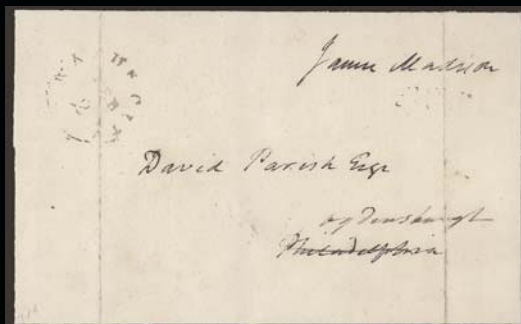 James Madison
David Parish Esqr
Ogdensburgh
Philadelphia